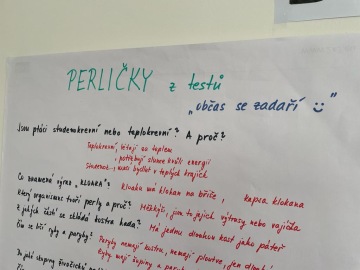 PERLIČKY z testů
„občas se zadaří ☺"
Jsou ptáci studenokrevní nebo teplokrevní? A proč?
Teplokrevní, létají za teplem
, potřebují slunce kvůli energii
Studenokr., musí bydlet v teplých krajích
Co znamená výraz „KLOAKA"? Kloaka má klokan na břiše, kapsa klokana
Který organismus tvoří perly a proč? Měkkýši, jsou to jejich výtrusy nebo vajíčka
Z jakých částí se skládá kostra hada? Má jednu dlouhou kost jako páteř
Čím se liší ryby a paryby? Paryby nemají kostru, nemají ploutve, jen
Ryby mají šupiny a
Do jaké skupiny živočichů